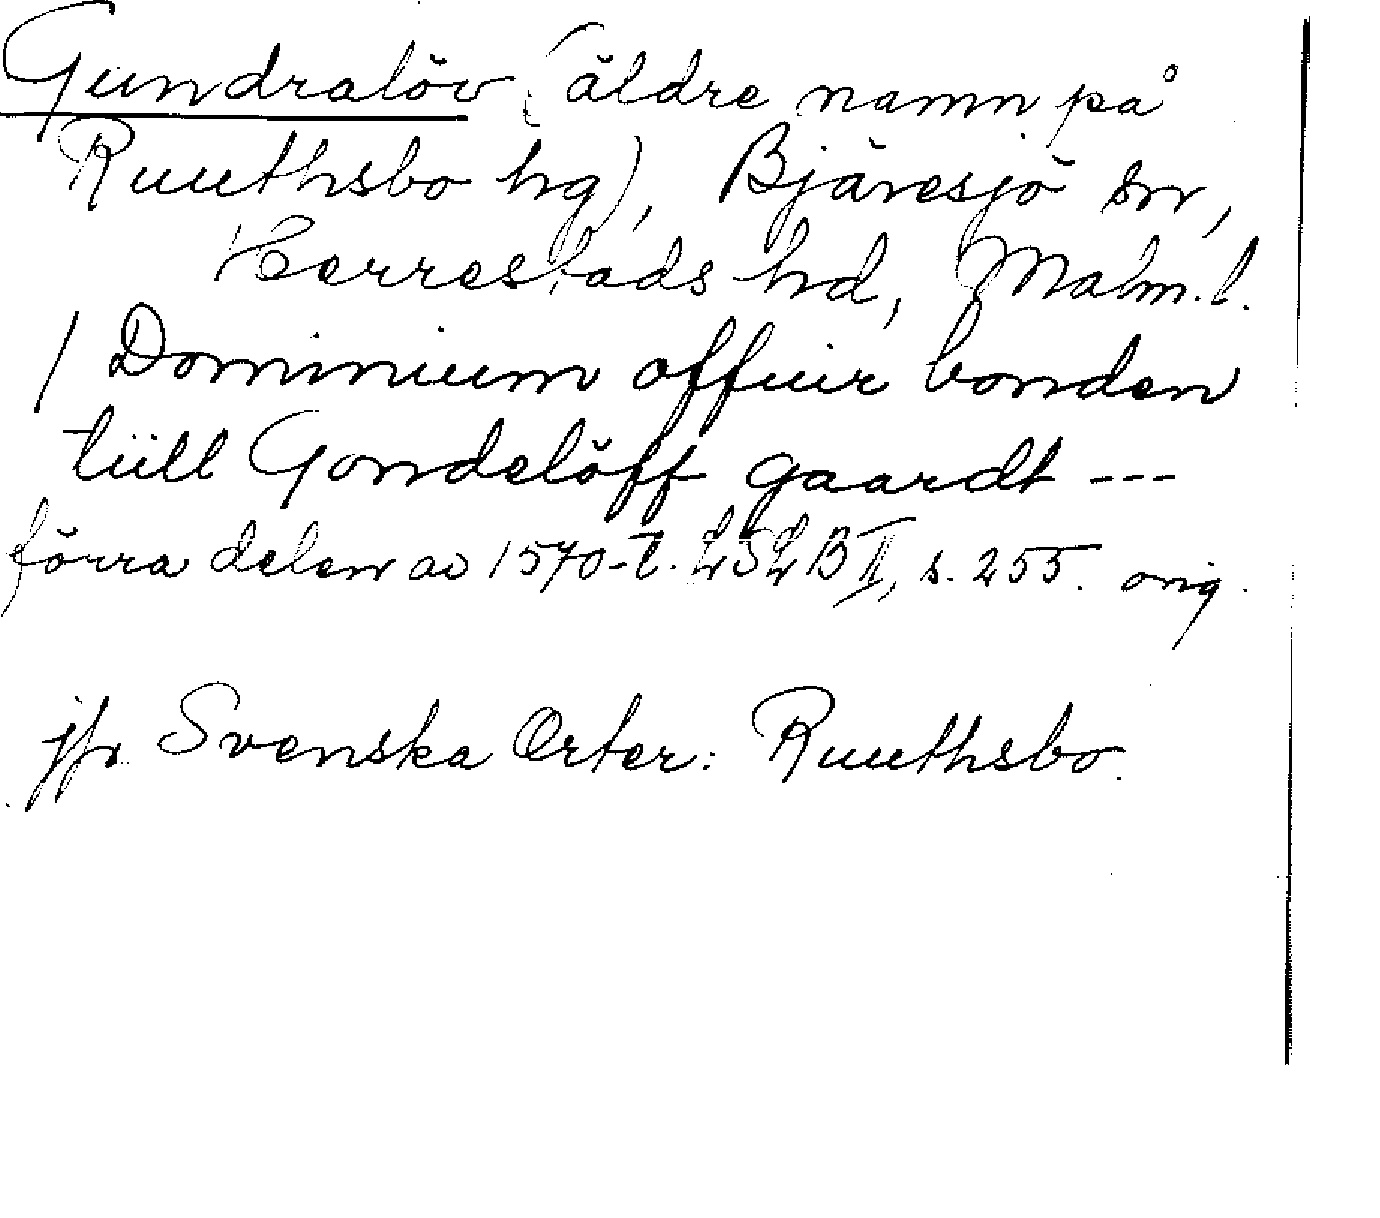 Gundralöv (äldre namn på
Ruuthsbo hg), Bjäresjö sn,
Herrestads hd, Malm. l.
/ Dominium offuir bonden
tiill Gondelöff gaardt ---
förra delen av 1570-t. LSLB II, s. 255. orig.
jfr Svenska Orter: Ruuthsbo.